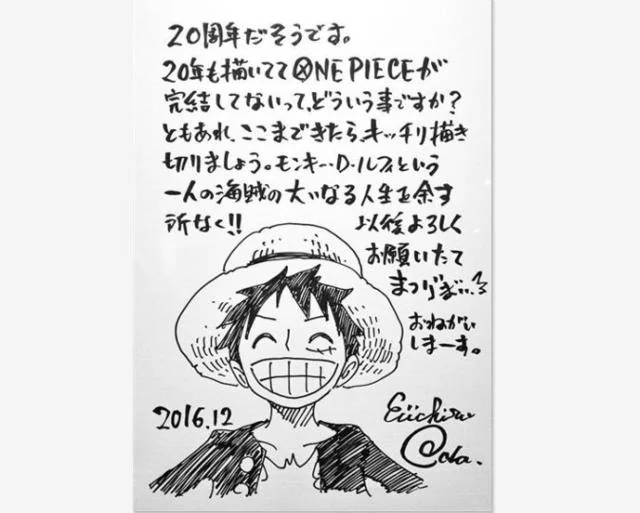 20周年だそうです。
20年も描いてて ONE PIECEが
完結してないって、どういう事ですか?
ともあれ、ここまできたら、キッチリ描き
切りましょう。モンキー・D・ルフィという
一人の海賊の大いなる人生を余す
所なく!! 以後よろしく
お願いたて
まつりまぁ
おねがい
しまーす。
2016.12
Eiichiro
Oda.